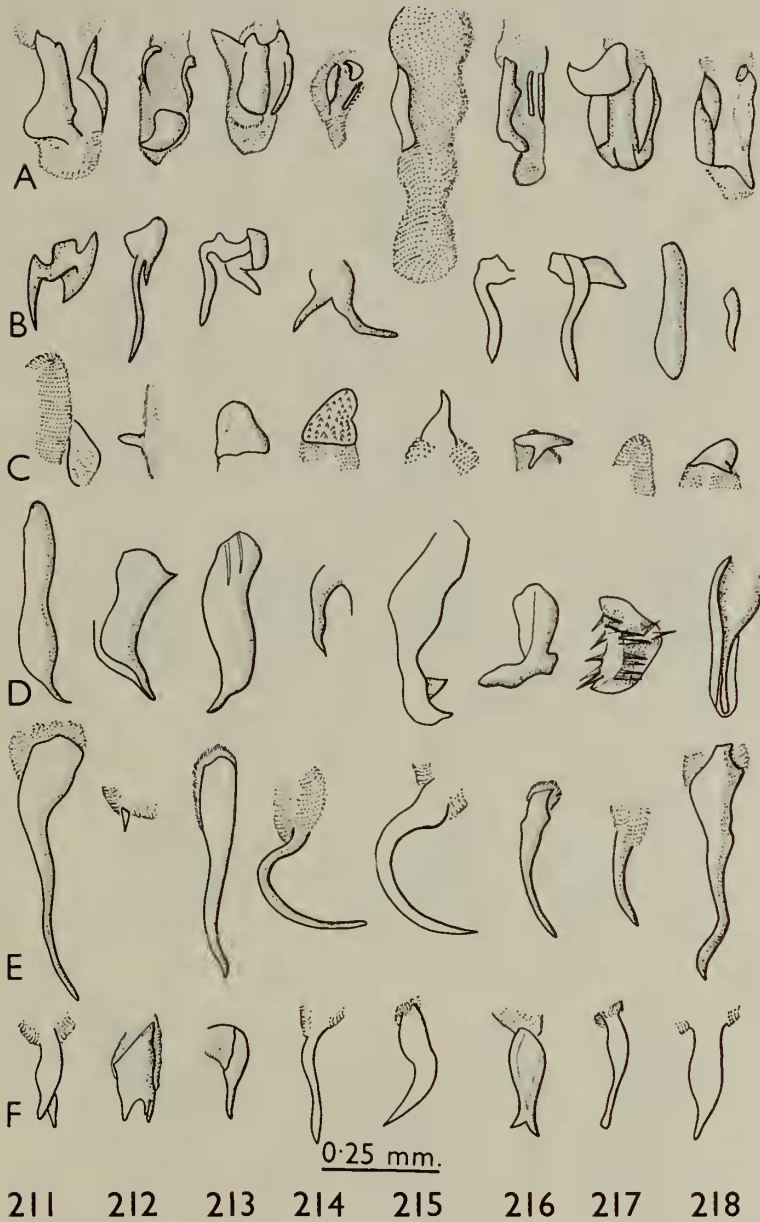 A
B
C
D
E
F
0·25 mm.
211 212 213 214 215 216 217 218